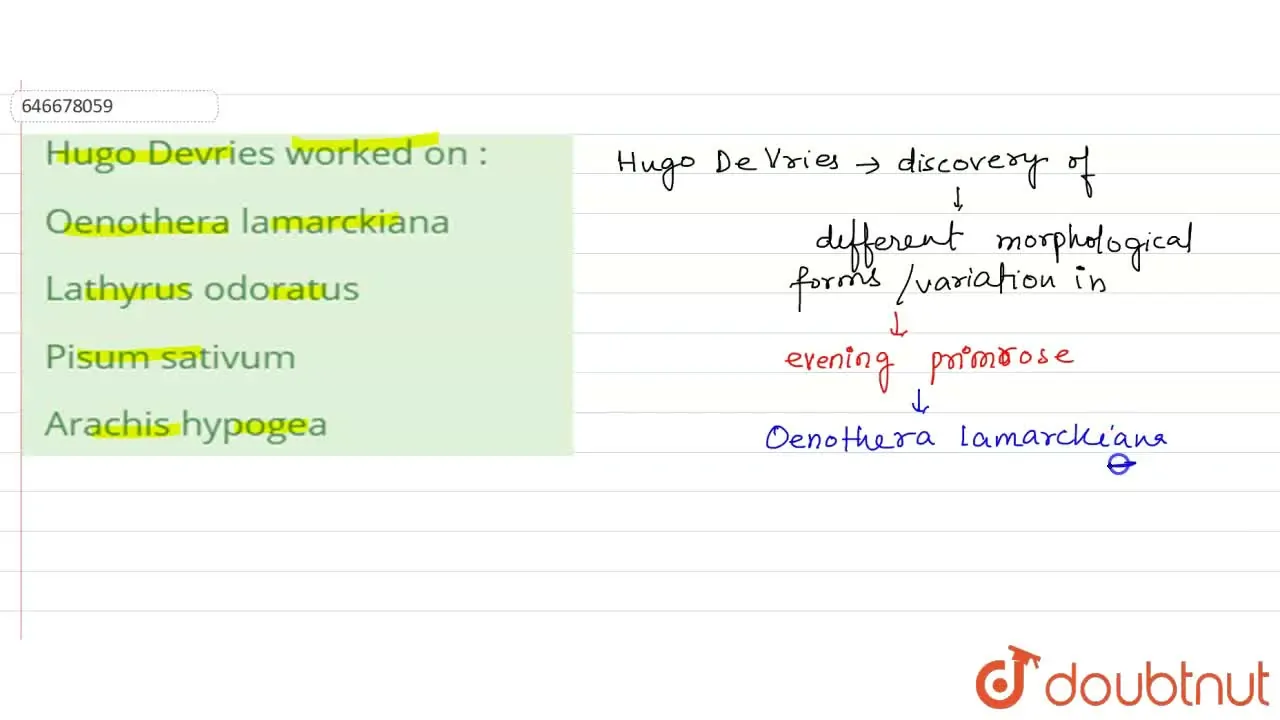 646678059
Hugo Devries worked on :
Oenothera lamarckiana
Lathyrus odoratus
Pisum sativum
Arachis hypogea
Hugo De Vries → discovery of
↓
different morphological
forms / variation in
↓
evening primrose
↓
Oenothera lamarckiana
doubtnut